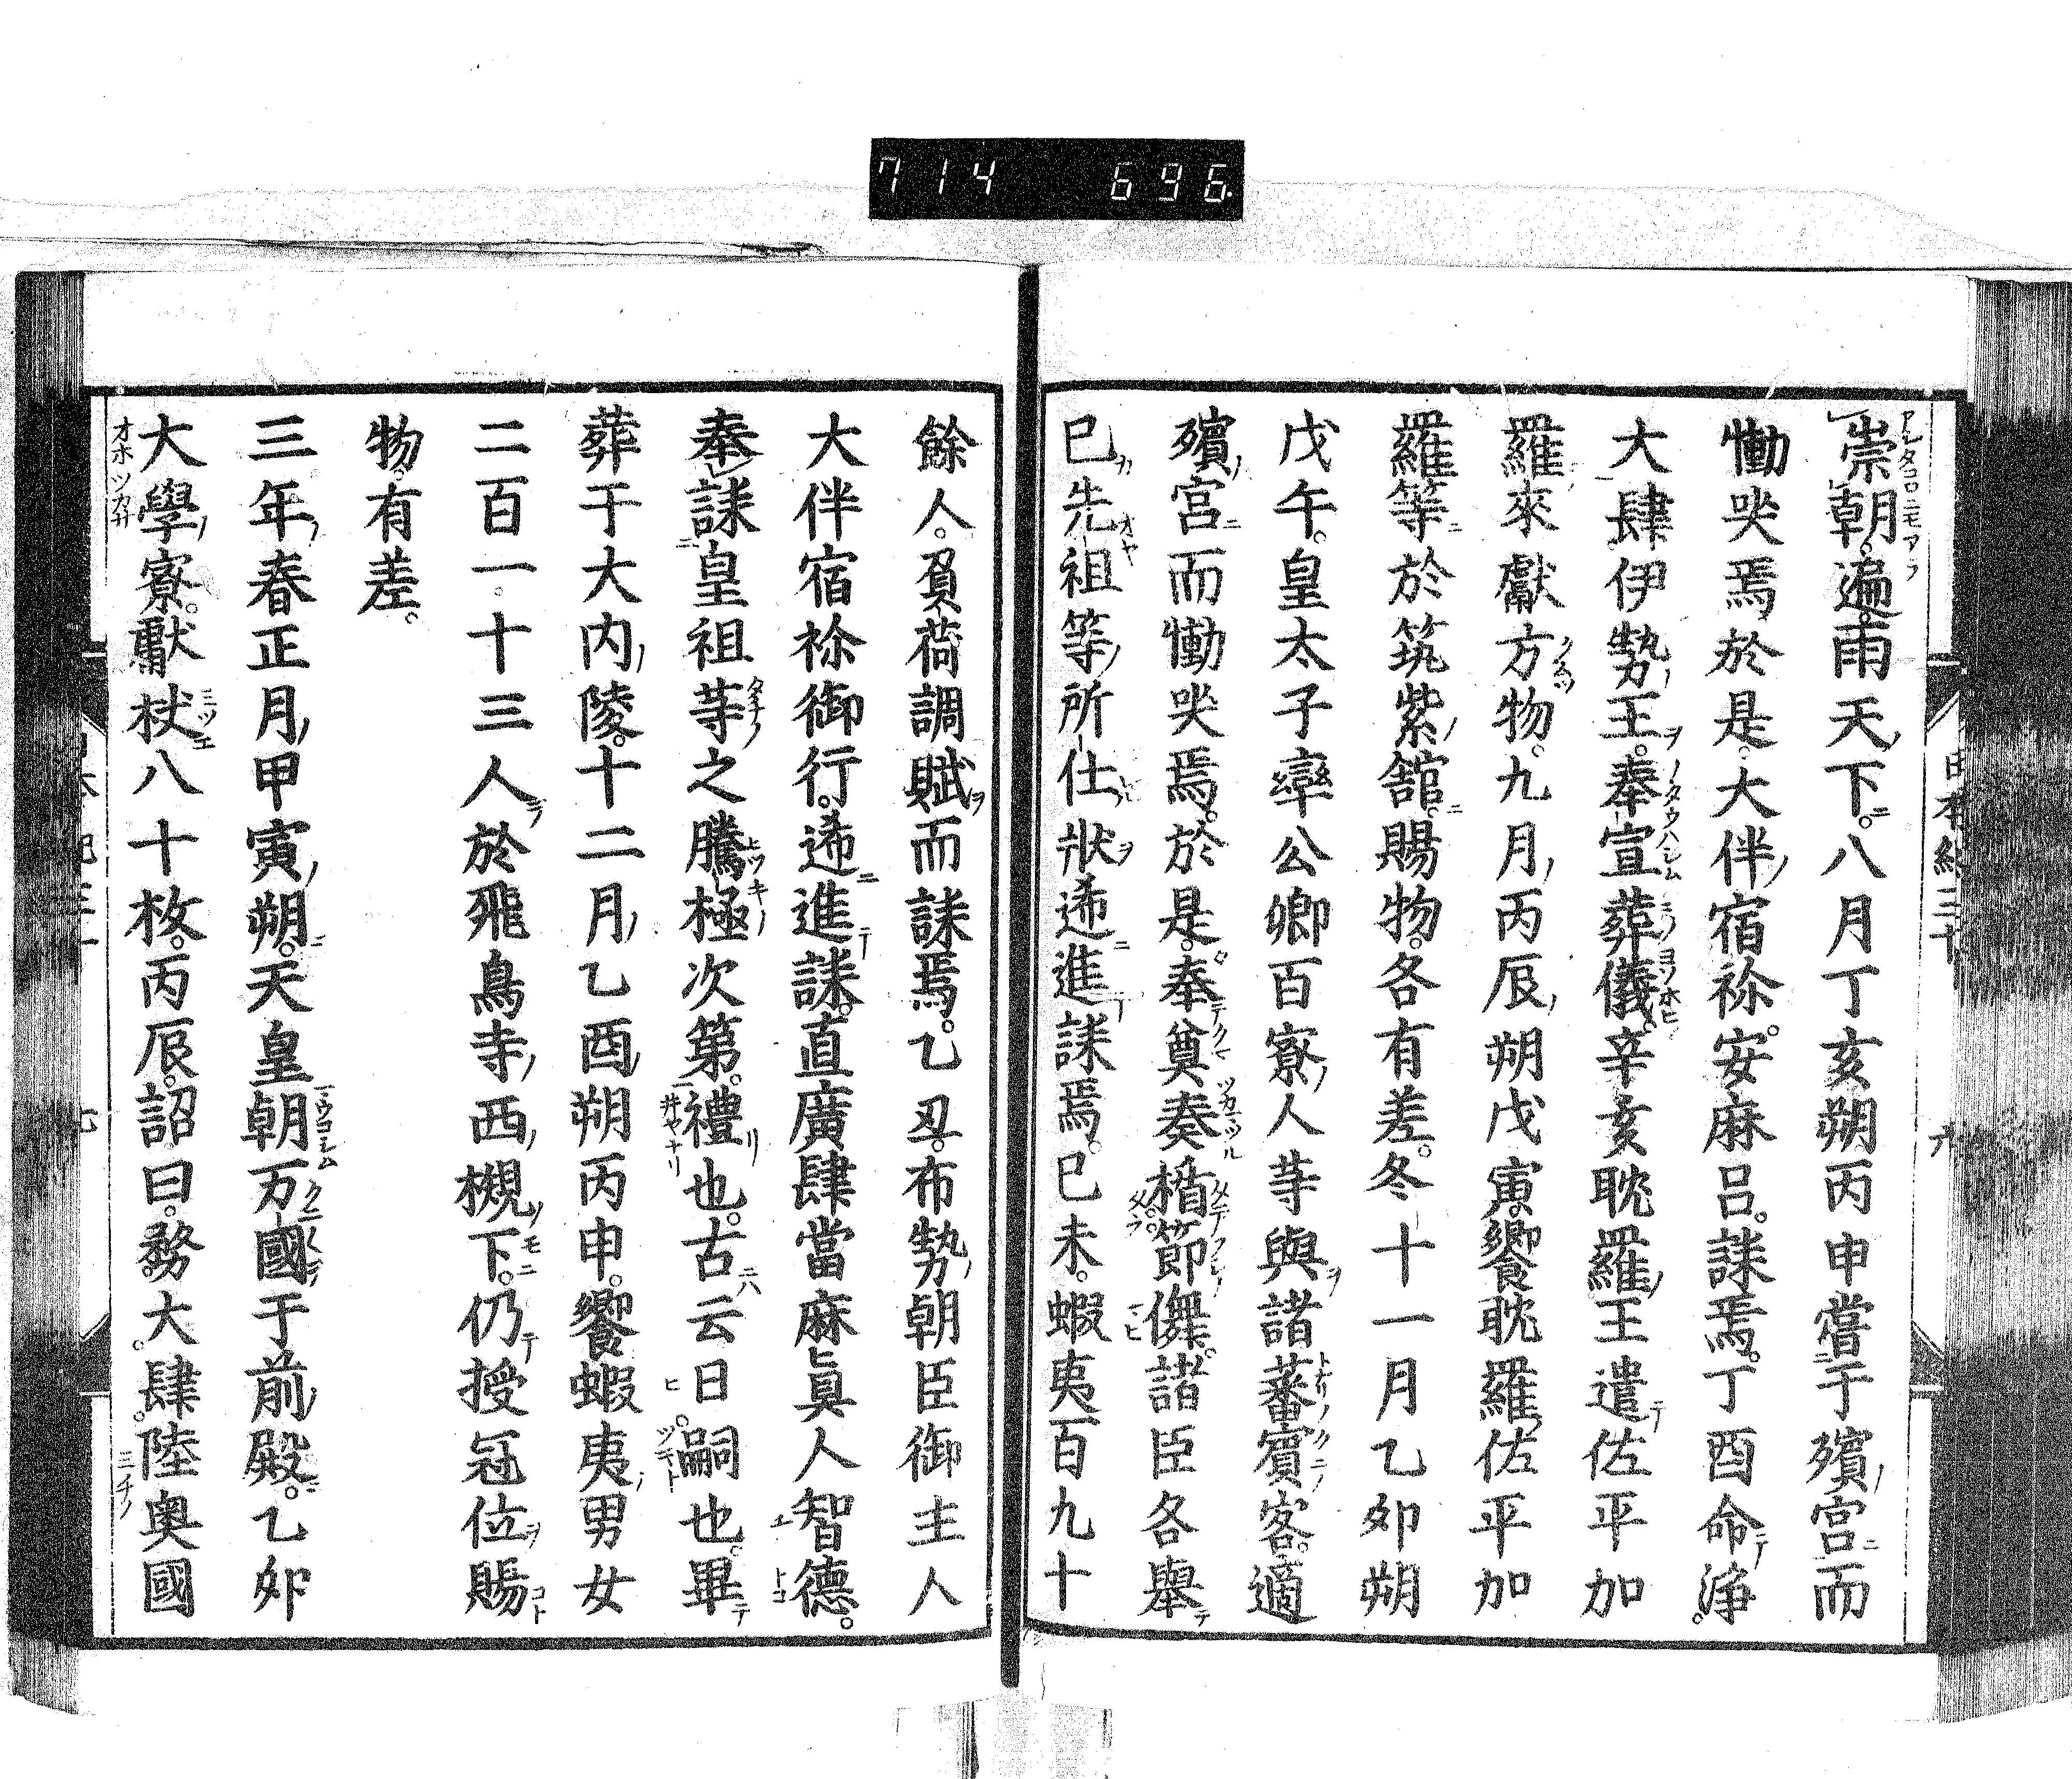 714 696
崇朝遍雨天下八月丁亥朔丙申嘗于殯宮而
慟哭焉於是大伴宿祢安麻呂誄焉丁酉命浄
大肆伊勢王奉宣葬儀辛亥耽羅王遣佐平加
羅來獻方物九月丙辰朔戊寅饗耽羅佐平加
羅等於筑紫舘賜物各有差冬十一月乙夘朔
戊午皇太子率公卿百寮人䒭與諸蕃賓客適
殯宮而慟哭焉於是奉奠奏楯節儛諸臣各舉
已先祖等所仕狀遞進誄焉已未蝦夷百九十
餘人負荷調賦而誄焉乙丑布勢朝臣御主人
大伴宿祢御行遞進誄直廣肆當麻眞人智德
奉誄皇祖䒭之騰極次第禮也古云日嗣也畢
葬于大内陵十二月乙酉朔丙申饗蝦夷男女
二百一十三人於飛鳥寺西槻下仍授冠位賜
物有差
三年春正月甲寅朔天皇朝万國于前殿乙夘
大學寮獻杖八十枚丙辰詔曰務大肆陸奥國